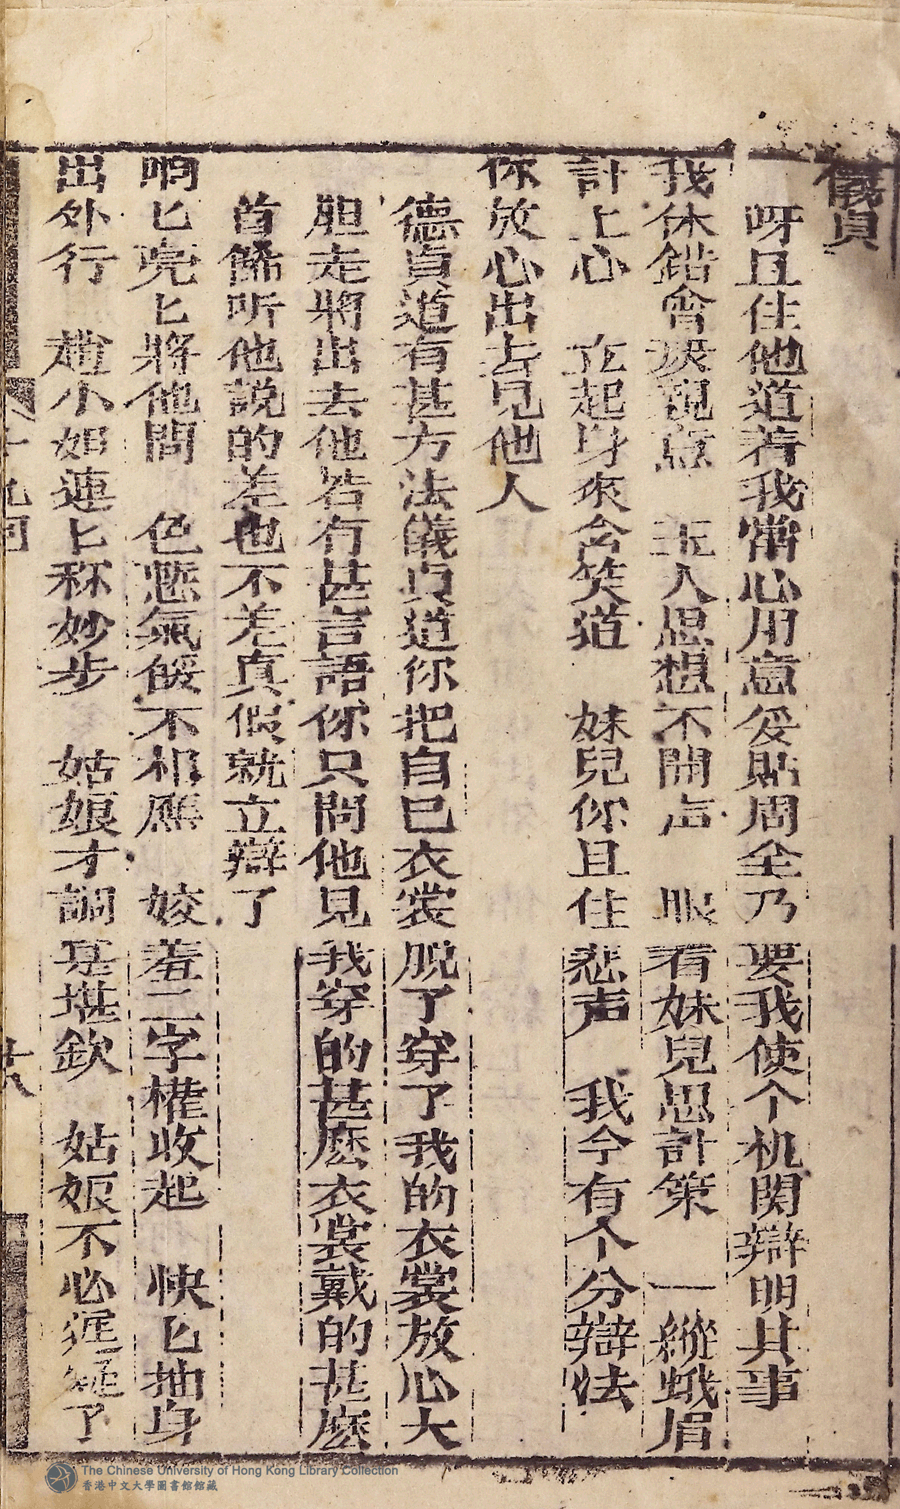 儀貞
呀且住他道着我當心用意妥貼周全乃要我使个机関辯明其事
我休錯會双親意 主人思想不開声 眼看妹兒思計策 一縱蛾眉
計上心 立起身來含笑道 妹兒你且住悲声 我今有个分辯法
你放心出去見他人
德貞道有甚方法儀貞道你把自已衣裳脫了穿了我的衣裳放心大
胆走將出去他若有甚言語你只問他見我穿的甚麽衣裳戴的甚麽
首饰听他説的差也不差真假就立辯了
响匕亮匕將他問 色悲氣餒不相應 姣羞二字權收起 快匕抽身
出外行 趙小姐連匕称妙步 姑娘才調寔堪欽 姑娘不必狂疑了
十九回
廿八
The Chinese University of Hong Kong Library Collection
香港中文大學圖書館館藏